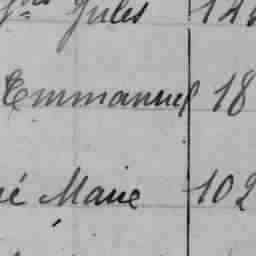 Jules 12
Emmanuel 18
é Marie 102